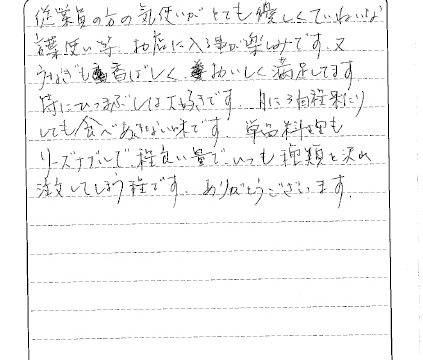 従業員の方の気使いがとても優しくていねいな
言葉使い等、お店に入る事が楽しみです。又
うなぎも香ばしくおいしく満足してます
特にひつまぶしは大好きです。月に3回程来たり
しても食べあきない味です。単品料理も
リーズナブルで程良い量でいつも種類を沢山
注文してしまう程です。ありがとうございます。